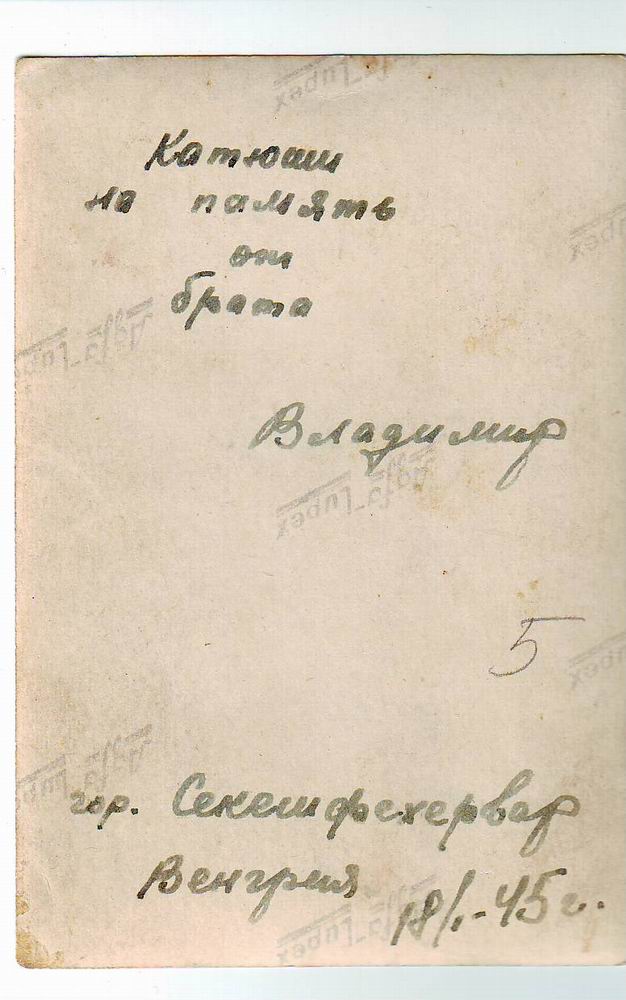 Катюши
на память
от
брата
Владимир
5
гор. Секешфехервар
Венгрия
18/I-45г.
Agfa-Lupex
Agfa-Lupex
Agfa-Lupex
Agfa-Lupex
Agfa-Lupex
Lupex
Lupex